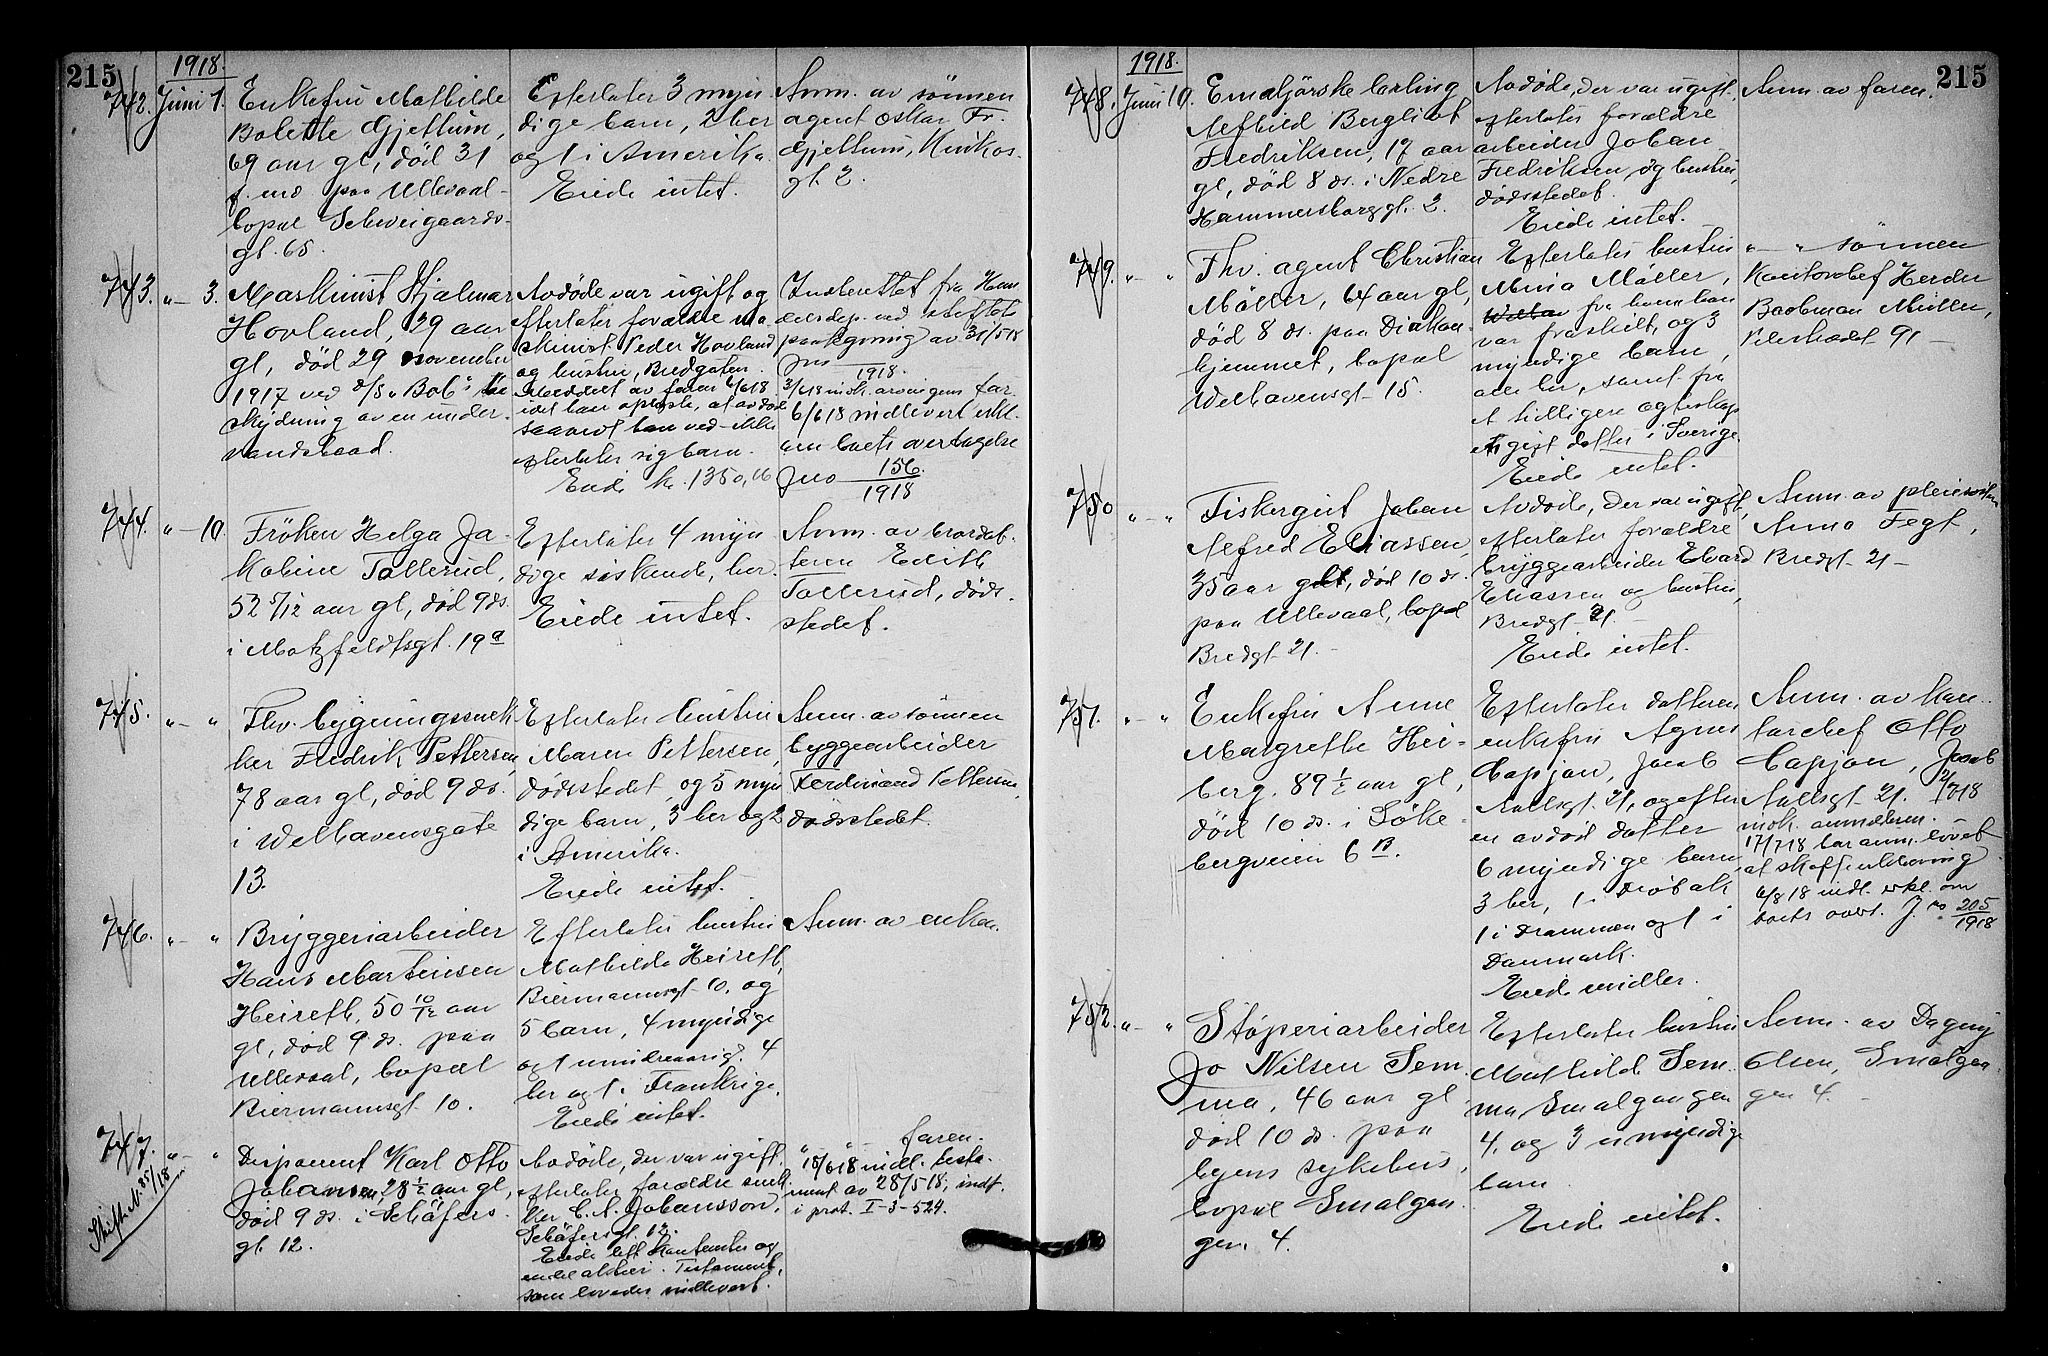 215
1918.
742. Juni 1.
Enkefru Mathilde
Bolette Gjettum,
69 aar gl, død 31
f. md paa Ullevaal
bopæl Schweigaards-
gt. 65.
Efterlater 3 myn
dige barn, 2 her
og 1 i Amerika.
Eiede intet.
Anm. av sönnen
agent Oskar Fr.
Gjettum,
gt. 2.
743. "—" 3.
Maskinist Hjalmar
Hovland, 29 aar
gl, død 29 november
1917 ved d/s "Bob"s
skydning av en under-
vandsbaad.
Avdöde var ugift og
efterlater forældre ma
skinist Peder Hovland
og hustru, Bredgaten.
av faren 6/6 18
at avdöde
ved
efterlater sig barn.
Eiede kr. 1350,06
Indberettet fra Han
delsdep. ved skiftet
av 31/5 18
Jno 1918.
3/6 18 insk. arvingens far.
6/6 18 indlevert erkl.
om boets overtagelse
Jno 156/1918
744. "—" 10.
Fröken Helga Ja-
kobine Tollerud,
52 5/12 aar gl, död 9 ds.
i Motzfeldtsgt. 19a
Efterlater 4 myn
dige söskende, her.
Eiede intet.
Anm. av brordat-
teren Edith
Tollerud, döds-
stedet.
745. "—"
Fhv. bygningssnek
ker Fredrik Pettersen,
78 aar gl, död 9 ds.
i Welhavensgate
13.
Efterlater hustru
Maren Pettersen,
dödsstedet, og 5 myn
dige barn, 3 her og 2
i Amerika.
Eiede intet.
Anm. av sönnen
byggearbeider
Ferdinand Pettersen,
dödsstedet.
746. "—"
Bryggeriarbeider
Hans Martinsen
Heireth, 50 10/12 aar
gl, död 9 ds. paa
Ullevaal, bopæl
Biermannsgt. 10.
Efterlater hustru
Mathilde Heireth,
Biermannsgt. 10, og
5 barn, 4 myndige
og 1 umindreaarig. 4
her og 1 i Frankrige.
Eiede intet.
Anm. av enken.
747. "—"
Skifte N. 85/18
Disponent Karl Otto
Johansen, 28 1/2 aar gl,
död 9 ds. i Schäfers
gt. 12.
Avdöde, der var ugift,
efterlater forældre snek
ker C. A. Johansson,
Schäfersgt. 12.
Eiede litt kontanter og
endel aktier. Testament,
som loves indlevert.
" — " faren.
15/6 18 indl. testa-
ment av 28/5 18; indf.
i prot. I-3-524.
215
1918.
748. Juni 10.
Alfhild Bergliot
Fredriksen, 17 aar
gl, död 8 ds. i Nedre
Hammersborggt. 2.
Avdöde, der var ugift,
efterlater forældre
arbeider Johan
Fredriksen og hustru,
dödsstedet.
Eiede intet.
Anm. av faren.
749. "—"
Fhv. agent Christian
Möller, 64 aar gl,
död 8 ds. paa Diakon-
hjemmet, bopæl
Welhavensgt. 15.
Efterlater hustru
Mina Möller,
fra hvem han
var fraskilt, og 3
myndige barn,
alle her, samt fra
et tidligere egteskap
en gift datter i Sverige.
Eiede intet.
" — " sönnen
Kontorchef Herder
Müller,
Pilestrædet 91 —
750 "—"
Fiskergut Johan
Alfred Eliassen,
35 aar gl, död 10 ds.
paa Ullevaal, bopæl
Bredgt. 21.
Avdöde, der var ugift,
efterlater forældre
bryggearbeider Edvard
Eliassen og hustru,
Bredgt. 21.
Eiede intet.
Anm. av pleiesöster
Anna Fegt,
Bredgt. 21 —
751. "—"
Enkefru Anne
Margrethe Hei-
berg. 89 1/2 aar gl,
död 10 ds. i Löke-
bergveien 6 B.
Efterlater datteren
enkefru Agnes
Capjon, Jacob
Aallsgt. 21, og efter
en avdöd datter
6 myndige barn,
3 her, 1 i Dröbak
1 i Drammen og 1 i
Danmark.
Eiede midler.
Anm. av kon-
torchef Otto
Capjon, Jacob
Aallsgt. 21. 2/7 18
insk. anmelderen.
17/7 18 har anm. lovet
at skaffe erklæring
6/8 18 indl. erkl. om
boets overt. J. no 205/1918
752. "—"
Støperiarbeider
Jo Nilsen Sem
ma, 46 aar gl
død 10 ds. paa
byens sykehus,
bopæl Smalgan
gen 4.
Efterlater hustru
Mathilde Sem-
ma Smalgangen
4. og 3 umyndige
barn.
Eiede intet.
Anm. av Dagny
Olsen, Smalgan
gen 4.